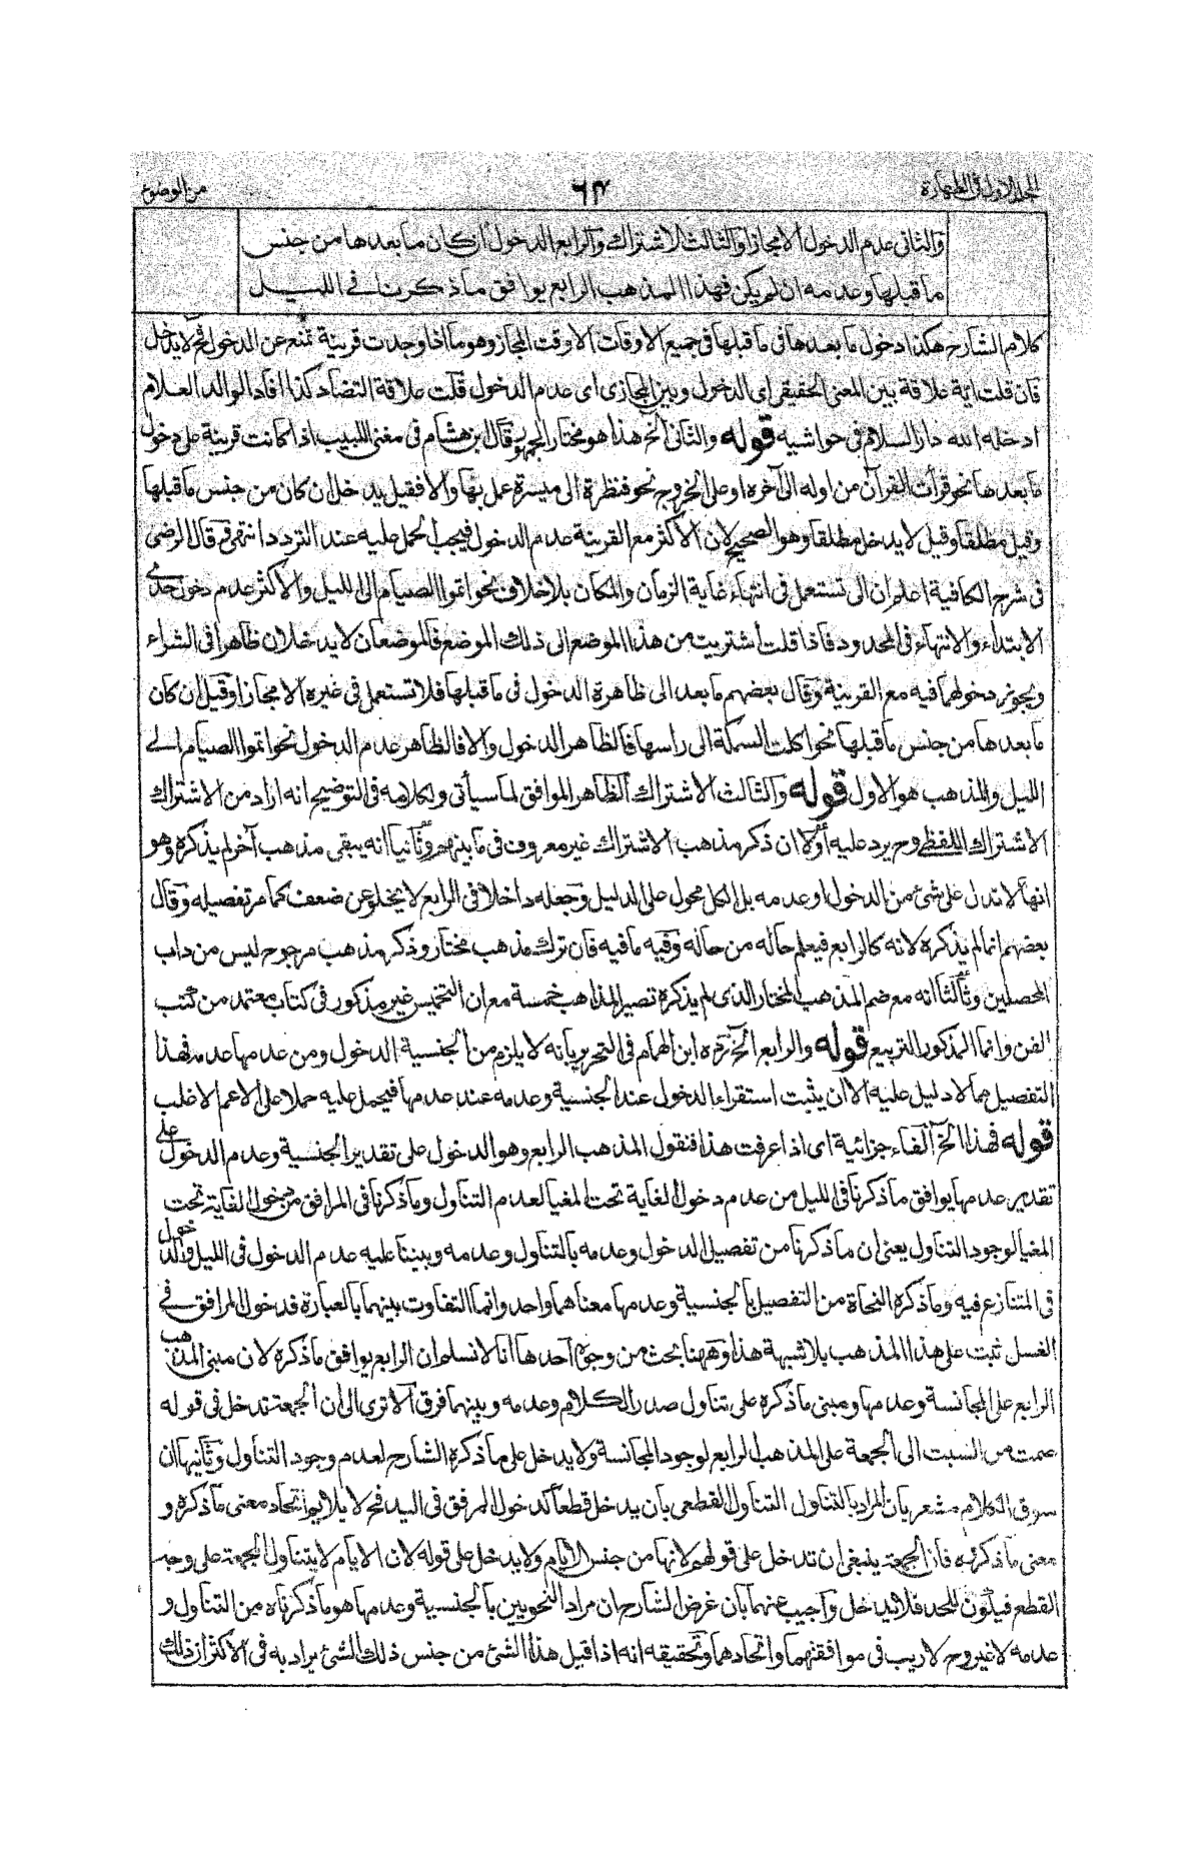 الجلد الاول فى الطهارة
٦٣
من الوضوء
والثانى عدم الدخول الا مجازا والثالث الاشتراك والرابع الدخول ان كان ما بعدها من جنس
ما قبلها وعدمه ان لم يكن فهذا المذهب الرابع يوافق ما ذكرنا فى الليل
كلام الشارح هكذا دخول ما بعدها فى ما قبلها فى جميع الاوقات الا وقت المجاز وهو ما اذا وجدت قرينة تمنع عن الدخول فح لا يدخل
فان قلت اية علاقة بين المعنى الحقيقى اى الدخول وبين المجازى اى عدم الدخول قلت علاقة التضاد كذا افاد الوالد العلام
ادخله الله دار السلام فى حواشيه قوله والثانى الخ هذا هو مختار الجمهور قال ابن هشام فى مغنى اللبيب اذا كانت قرينة على دخول
ما بعدها نحو قرأت القرآن من اوله الى آخره او على الخروج نحو فنظرة الى ميسرة عمل بها والا فقيل يدخل ان كان من جنس ما قبلها
وقيل مطلقا وقيل لا يدخل مطلقا وهو الصحيح لان الاكثر مع القرينة عدم الدخول فيجب الحمل عليه عند التردد انتهى وقال الرضى
فى شرح الكافية اعلم ان الى تستعمل فى انتهاء غاية الزمان والمكان بلا خلاف نحو اتموا الصيام الى الليل والاكثر عدم دخول حدى
الابتداء والانتهاء فى المحدود فاذا قلت اشتريت من هذا الموضع الى ذلك الموضع فالموضعان لا يدخلان ظاهرا فى الشراء
ويجوز دخولهما فيه مع القرينة وقال بعضهم ما بعد الى ظاهرة الدخول فى ما قبلها فلا تستعمل فى غيره الا مجازا وقيل ان كان
ما بعدها من جنس ما قبلها نحو اكلت السمكة الى راسها فالظاهر الدخول والا فالظاهر عدم الدخول نحو اتموا الصيام الى
الليل والمذهب هو الاول قوله والثالث الاشتراك الظاهر الموافق لما سيأتى ولكلامه فى التوضيح انه اراد من الاشتراك
الاشتراك اللفظى وح يرد عليه اولا ان ذكر مذهب الاشتراك غير معروف فى ما بينهم وثانيا انه يبقى مذهب آخر لم يذكره وهو
انها لا تدل على شئ من الدخول او عدمه بل الكل محول على الدليل وجعله داخلا فى الرابع لا يخلو عن ضعف كما مر تفصيله وقال
بعضهم انما لم يذكره لانه كالرابع فيعلم حاله من حاله وفيه ما فيه فان ترك مذهب مختار وذكر مذهب مرجوح ليس من داب
المحصلين وثالثا انه مع ضم المذهب المختار الذى لم يذكره تصير المذاهب خمسة مع ان التخميس غير مذكور فى كتاب معتمد من كتب
الفن وانما المذكور التربيع قوله والرابع الخ رده ابن الهمام فى التحرير بانه لا يلزم من الجنسية الدخول ومن عدمها عدمه فهذا
التفصيل مما لا دليل عليه الا ان يثبت استقراء الدخول عند الجنسية وعدمه عند عدمها فيحمل عليه حملا على الاعم الاغلب
قوله فهذا الخ الفاء جزائية اى اذا عرفت هذا فنقول المذهب الرابع وهو الدخول على تقدير الجنسية وعدم الدخول على
تقدير عدمها يوافق ما ذكرنا فى الليل من عدم دخول الغاية تحت المغيا لعدم التناول وما ذكرنا فى المرافق من دخول الغاية تحت
المغيا لوجود التناول يعنى ان ما ذكرنا من تفصيل الدخول وعدمه بالتناول وعدمه وبيننا عليه عدم الدخول فى الليل والدخول
فى المتنازع فيه وما ذكره النحاة من التفصيل بالجنسية وعدمها معناهما واحد وانما التفاوت بينهما بالعبارة فدخول المرافق فى
الغسل ثبت على هذا المذهب بلا شبهة هذا وههنا بحث من وجوه احدها انا لا نسلم ان الرابع يوافق ما ذكره لان مبنى المذهب
الرابع على المجانسة وعدمها ومبنى ما ذكره على تناول صدر الكلام وعدمه وبينهما فرق الا ترى الى ان الجمعة تدخل فى قوله
صمت من السبت الى الجمعة على المذهب الرابع لوجود المجانسة ولا يدخل على ما ذكره الشارح لعدم وجود التناول وثانيها ان
سوق الكلام مشعر بان المراد بالتناول التناول القطعى بان يدخل قطعا كدخول المرفق فى اليد فح لا يلايم اتحاد معنى ما ذكره و
معنى ما ذكروه فان الجمعة ينبغى ان تدخل على قولهم لانها من جنس الايام ولا يدخل على قوله لان الايام لا يتناول الجمعة على وجه
القطع فيكون للحد فلا يدخل واجيب عنهما بان غرض الشارح ان مراد النحويين بالجنسية وعدمها هو ما ذكرناه من التناول و
عدمه لا غير وح لا ريب فى موافقتهما واتحادهما وتحقيقه انه اذا قيل هذا الشئ من جنس ذلك الشئ يراد به فى الاكثر ان ذلك